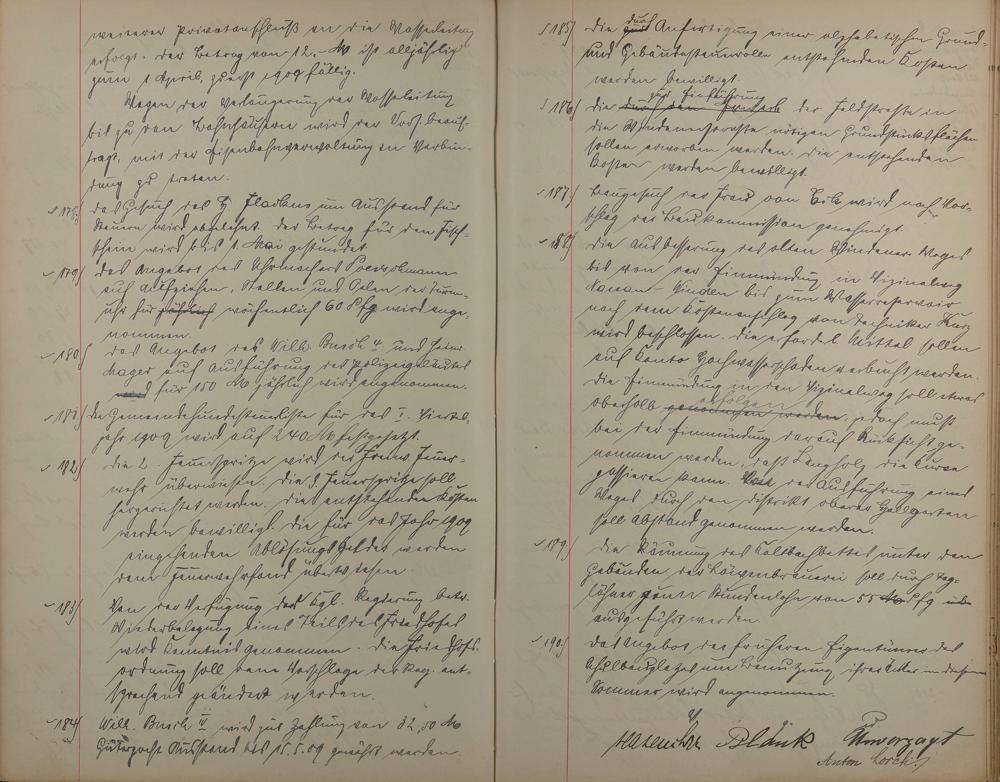 weiterer Privatanschluß an die Wasserleitung
erfolgt. Der Betrag von 12.- M ist alljährlig
zum 1 April, zuerst 1909 fällig.
Wegen der Verlängerung der Wasserleitung
bis zu den Bahnhäusern wird der Vors. beauf-
tragt, mit der Eisenbahnverwaltung in Verbin-
dung zu treten.
178) Das Gesuch des H. um Ausstand für
Steuern wird abgelehnt. Der Betrag für den
wird bis 1 Mai gestundet.
179) Das Angebot des Uhrmachers
auf Aufziehen, Stellen und Oelen der Turm-
uhr für jährlich wöchentlich 60 Pfg wird ange-
nommen.
180) Das Angebot des Wilh. Busch 4. und Heinr.
Mager auf Ausführung des Polizeigeläutes
für 150 M jährlich wird angenommen.
181) Die Gemeindehundesteuerliste für das I. Viertel-
jahr 1909 wird auf 240 M festgesetzt.
182) Die 2. Feuerspritze wird der Freiw. Feuer-
wehr überwiesen. Die 3. Feuerspritze soll
hergerichtet werden. Die entstehenden Kosten
werden bewilligt. Die für das Jahr 1909
eingehenden Ablösungsgelder werden
dem Feuerwehrfond überwiesen.
183) Von der Verfügung der Kgl. Regierung betr.
Wiederbelegung eines Teils des Friedhofes
wird Kenntnis genommen. Die Friedhofs-
ordnung soll dem Vorschlage der Reg. ent-
sprechend geändert werden.
184) Wilh. Busch IV wird zur Zahlung von 32,50 M
Güterpacht Ausstand bis 15.5.09 gewährt werden.
185) Die durch Anfertigung einer alphabetischen Grund-
und Gebäudesteuerrolle entstehenden Kosten
werden bewilligt.
186) Die zur Einführung der Feldstraße in
die Windenerstraße nötigen Grundstücksflächen
sollen erworben werden. Die entstehenden
Kosten werden bewilligt.
187) Baugesuch der Frau von wird nach Vor-
schlag der Baukommission genehmigt.
188) Die Ausbesserung des alten Windener Weges
bis von der Einmündung in Vizinalweg
Nassau-Winden bis zum Wasserreservoir
nach dem Kostenanschlag von Techniker Kurz
wird beschlossen. Die erforderl. Mittel sollen
auf Konto Hochwasserschaden verbucht werden.
Die Einmündung in den Vizinalweg soll etwas
oberhalb genommen werden erfolgen, jedoch muß
bei der Einmündung darauf Rücksicht ge-
nommen werden, daß Langholz die Curve
passieren kann. Von der Ausführung eines
Weges durch den Distrikt oberer Hallgarten
soll Abstand genommen werden.
189) Die Räumung des Kaltbachbettes unter den
Gebäuden der Löwenbrauerei soll durch Tag-
löhner zum Stundenlohn von 35 Pfg
ausgeführt werden.
190) Das Angebot der früheren Eigentümer des
Schulbauplatzes um Benutzung ihrer Güter in diesem
Sommer wird angenommen.
Hasenclever Blank Unverzagt
Anton Lorch